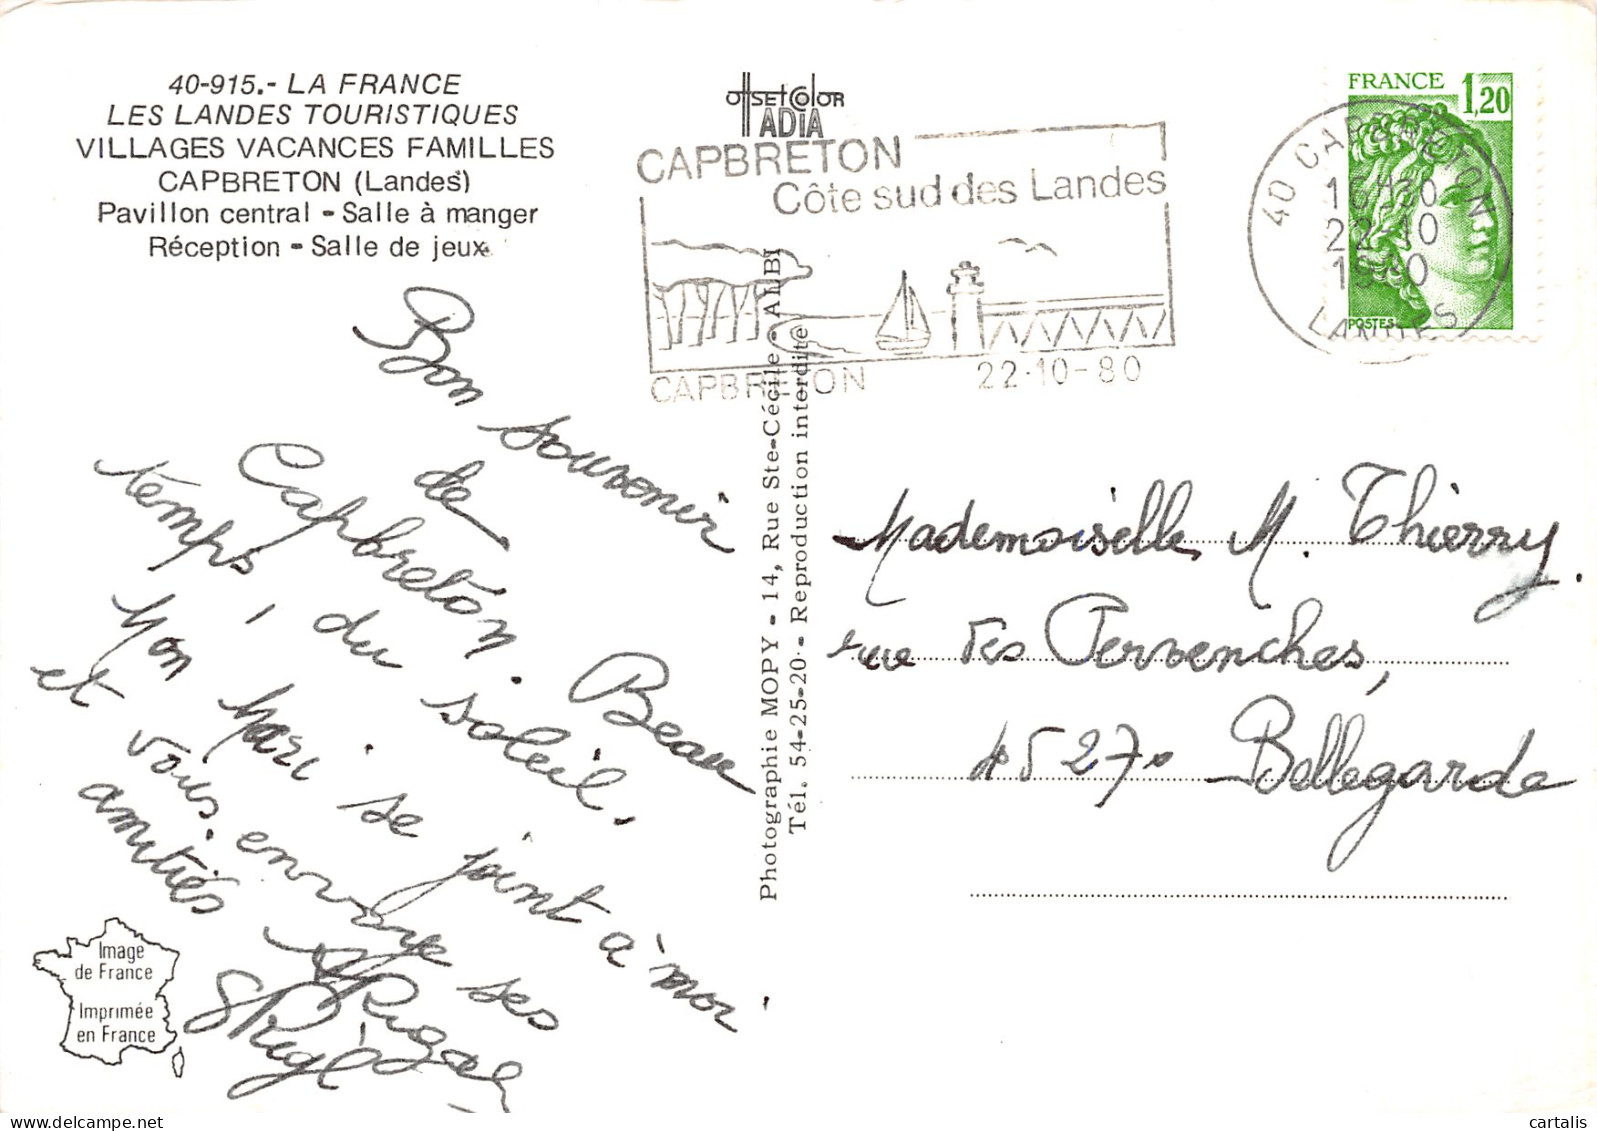 40-915.- LA FRANCE
LES LANDES TOURISTIQUES
VILLAGES VACANCES FAMILLES
CAPBRETON (Landes)
Pavillon central - Salle à manger
Réception - Salle de jeux
offset color
ADIA
CAPBRETON
Côte sud des Landes
CAPBRETON
22-10-80
FRANCE 1,20
POSTES
40 CAPBRETON
16H30
22-10
1980
LANDES
Bon souvenir
de
Capbreton Beau
temps, du soleil.
Mon Mari se joint à moi
et vous envoye ses
amitiés
Photographie MOPY - 14, Rue Ste-Cécile - ALBI
Tél. 54-25-20 - Reproduction interdite
Mademoiselle M. Thierry.
rue des Pervenches,
45270 Bellegarde
Image
de France
Imprimée
en France
cartalis